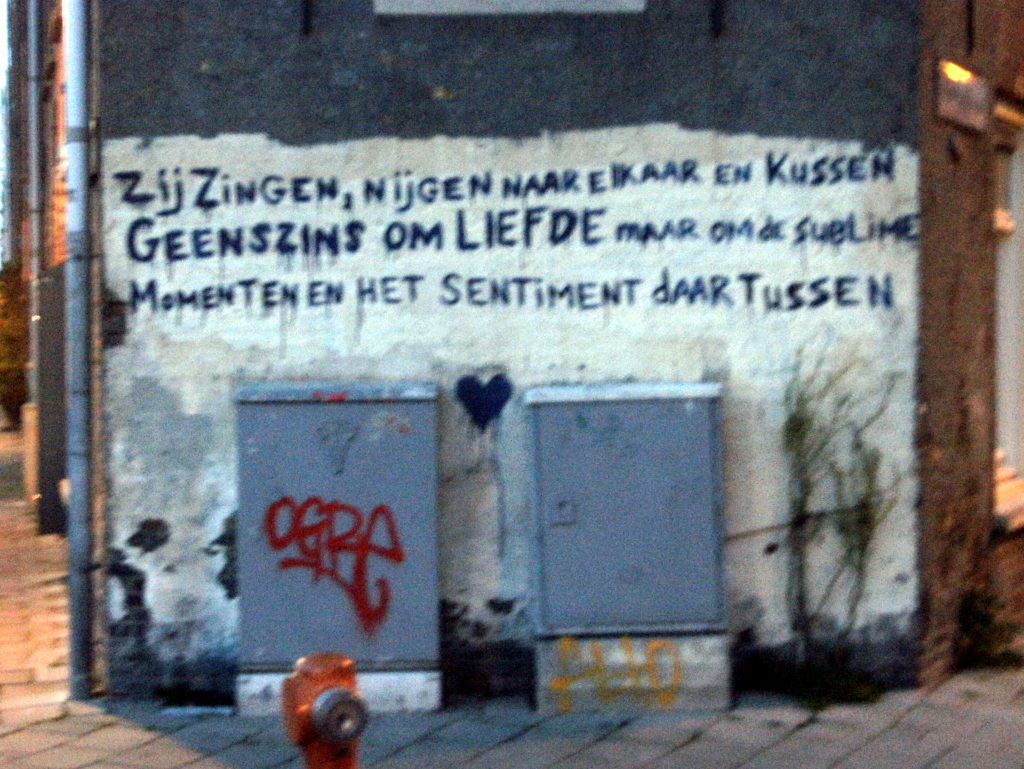 ZijZiNGEN, NijGEN NAAR ElKAAR EN KUSSEN
GEENSZINS OM LIEFDE MAAR OM de SUBLIME
MOMENTEN EN HET SENTiMENT dAARTUSSEN
OGRE